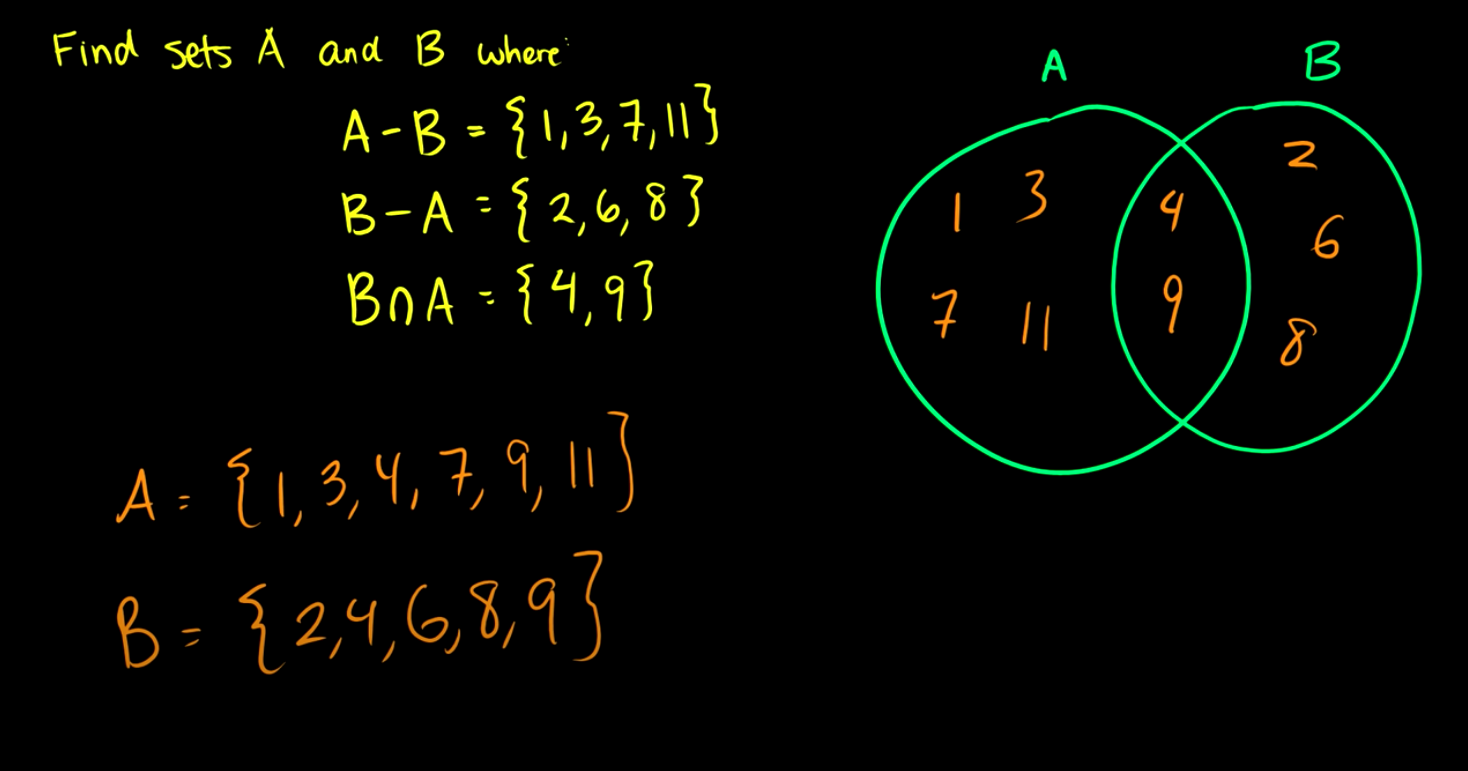 Find sets A and B where:
A - B = {1, 3, 7, 11}
B - A = {2, 6, 8}
B ∩ A = {4, 9}
A = {1, 3, 4, 7, 9, 11}
B = {2, 4, 6, 8, 9}
A B
2
1 3 4
6
7 11 9
8